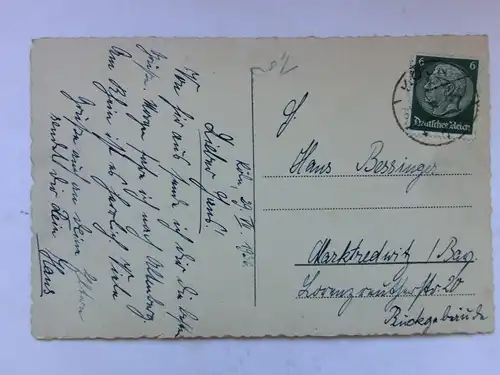 Köln, 29. VII.
Lieber Hans!
Von hier aus sende ich dir die besten
Grüße. Morgen fahre ich nach Altenberg.
Am Rhein ist es herrlich. Viele
Grüße auch an deine Eltern
sendet dir dein
Hans
6 6
Deutsches Reich
H.
Hans Bessinger
Marktredwitz / Bay.
Lorenzreutherstr 20
Rückgebäude